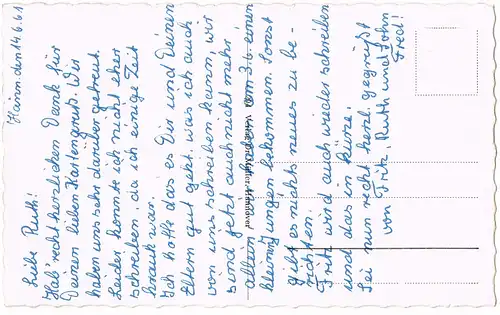 Hainn den 14.6.61
Liebe Ruth!
Hab recht herzlichen Dank für
Deinen lieben Kartengruß. Wir
haben uns sehr darüber gefreut.
Leider konnte ich nicht eher
schreiben, da ich einige Zeit
krank war.
Ich hoffe das es Dir und Deinen
Eltern gut geht, was ich auch
von uns schreiben kann, wir
sind jetzt auch nicht mehr
allein wir haben am 3.6. einen
kleinen Jungen bekommen. Sonst
gibt es nichts neues zu be-
richten.
Fritz wird auch wieder schreiben
und das in Kürze.
Sei nun recht herzl. gegrüßt
von Fritz, Ruth und Sohn
Fred!